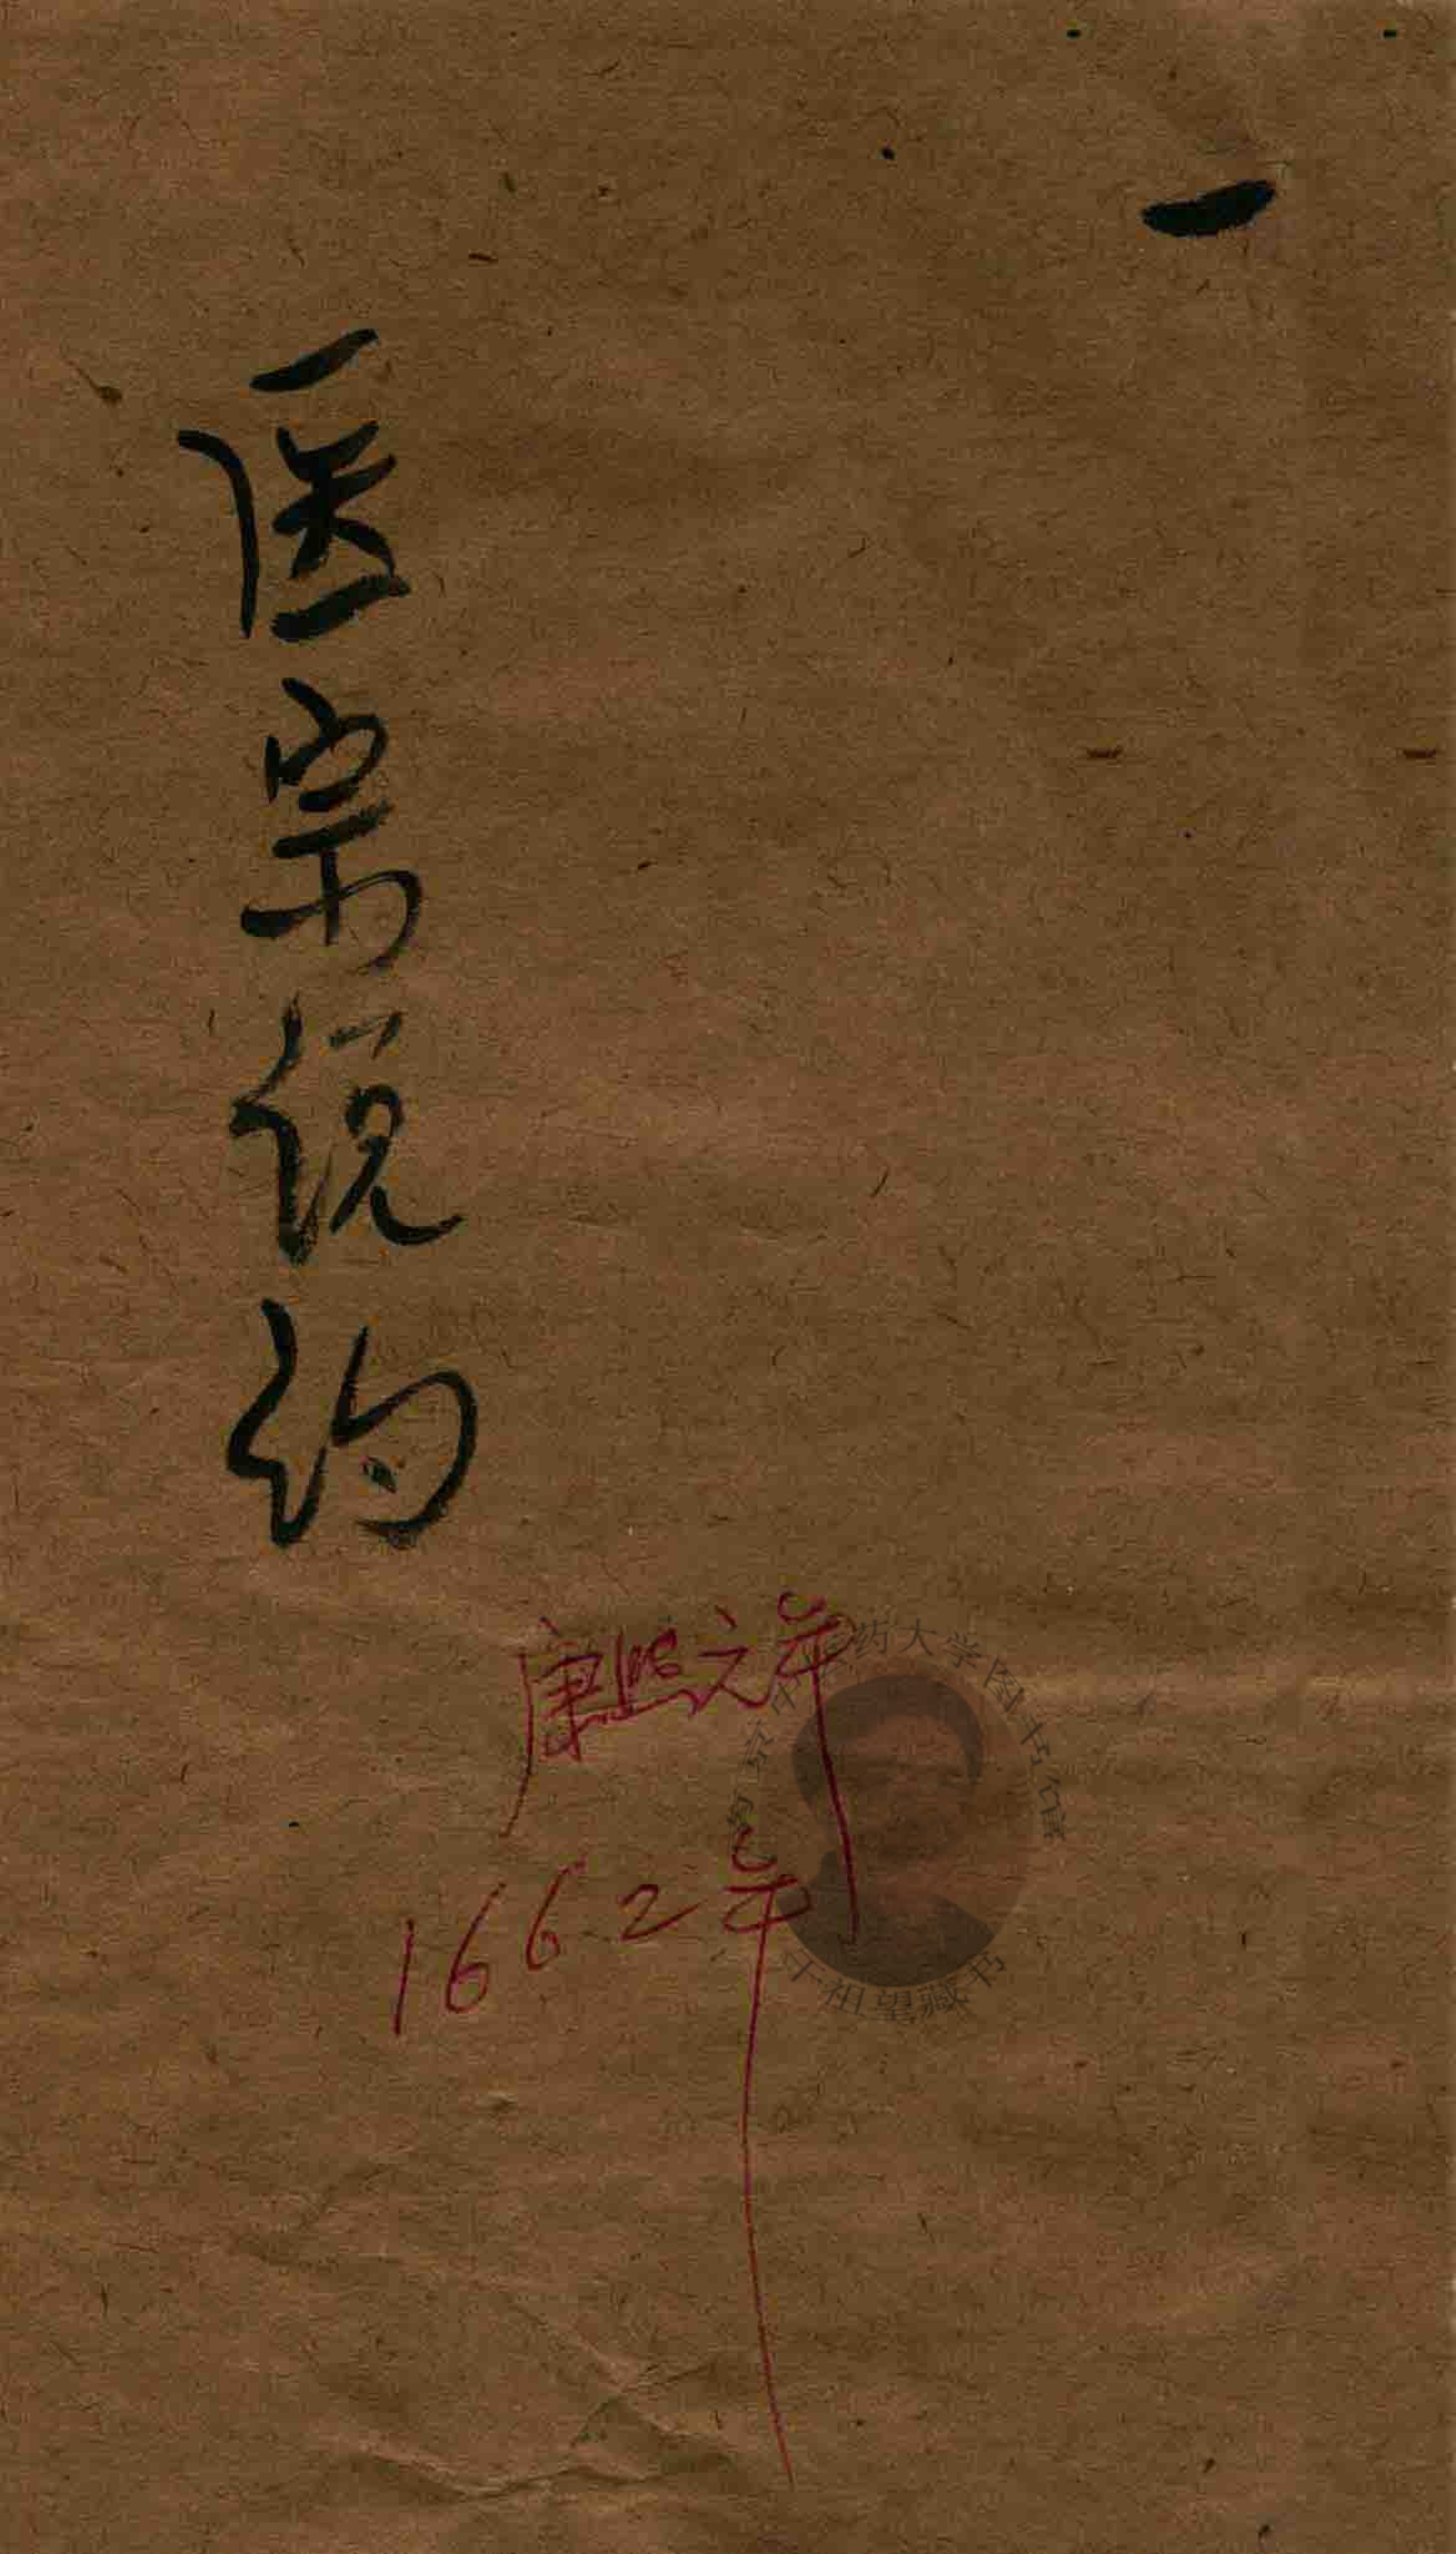 一
医宗说约
康熙元年
1662年
南京中医药大学图书馆
干祖望藏书